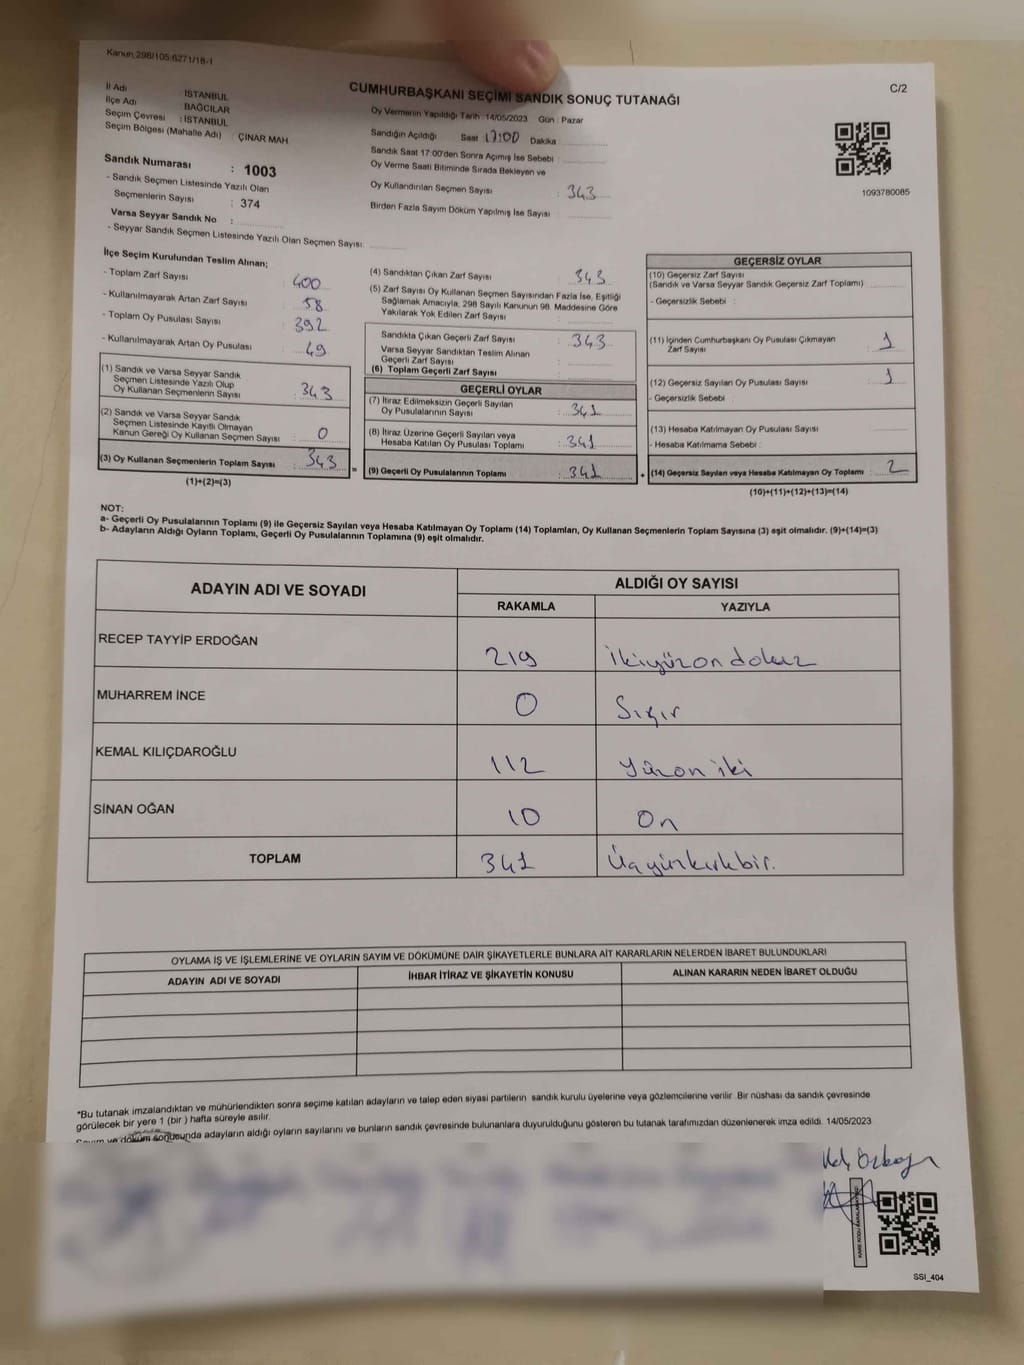 Kanun:298/105:6271/18-1
CUMHURBAŞKANI SEÇİMİ SANDIK SONUÇ TUTANAĞI
C/2
İl Adı İSTANBUL
İlçe Adı BAĞCILAR
Seçim Çevresi : İSTANBUL
Seçim Bölgesi (Mahalle Adı) : ÇINAR MAH
Sandık Numarası : 1003
- Sandık Seçmen Listesinde Yazılı Olan
Seçmenlerin Sayısı : 374
Varsa Seyyar Sandık No :
- Seyyar Sandık Seçmen Listesinde Yazılı Olan Seçmen Sayısı:
Oy Vermenin Yapıldığı Tarih 14/05/2023 Gün : Pazar
Sandığın Açıldığı Saat 17:00 Dakika
Sandık Saat 17:00'den Sonra Açımış İse Sebebi :
Oy Verme Saati Bitiminde Sırada Bekleyen ve
Oy Kullandırılan Seçmen Sayısı : 343
Birden Fazla Sayım Döküm Yapılmış İse Sayısı :
1093780085
İlçe Seçim Kurulundan Teslim Alınan;
- Toplam Zarf Sayısı : 400
- Kullanılmayarak Artan Zarf Sayısı : 58
- Toplam Oy Pusulası Sayısı : 392
- Kullanılmayarak Artan Oy Pusulası : 49
(1) Sandık ve Varsa Seyyar Sandık
Seçmen Listesinde Yazılı Olup
Oy Kullanan Seçmenlerin Sayısı : 343
(2) Sandık ve Varsa Seyyar Sandık
Seçmen Listesinde Kayıtlı Olmayan
Kanun Gereği Oy Kullanan Seçmen Sayısı : 0
(3) Oy Kullanan Seçmenlerin Toplam Sayısı : 343
(1)+(2)=(3)
(4) Sandıktan Çıkan Zarf Sayısı : 343
(5) Zarf Sayısı Oy Kullanan Seçmen Sayısından Fazla İse, Eşitliği
Sağlamak Amacıyla, 298 Sayılı Kanunun 98. Maddesine Göre
Yakılarak Yok Edilen Zarf Sayısı :
Sandıkta Çıkan Geçerli Zarf Sayısı : 343
Varsa Seyyar Sandıktan Teslim Alınan
Geçerli Zarf Sayısı :
(6) Toplam Geçerli Zarf Sayısı :
GEÇERLİ OYLAR
(7) İtiraz Edilmeksizin Geçerli Sayılan
Oy Pusulalarının Sayısı : 341
(8) İtiraz Üzerine Geçerli Sayılan veya
Hesaba Katılan Oy Pusulası Toplamı : 341
= (9) Geçerli Oy Pusulalarının Toplamı : 341
GEÇERSİZ OYLAR
(10) Geçersiz Zarf Sayısı
(Sandık ve Varsa Seyyar Sandık Geçersiz Zarf Toplamı) :
- Geçersizlik Sebebi :
(11) İçinden Cumhurbaşkanı Oy Pusulası Çıkmayan
Zarf Sayısı : 1
(12) Geçersiz Sayılan Oy Pusulası Sayısı : 1
- Geçersizlik Sebebi :
(13) Hesaba Katılmayan Oy Pusulası Sayısı :
- Hesaba Katılmama Sebebi :
+ (14) Geçersiz Sayılan veya Hesaba Katılmayan Oy Toplamı : 2
(10)+(11)+(12)+(13)=(14)
NOT:
a- Geçerli Oy Pusulalarının Toplamı (9) ile Geçersiz Sayılan veya Hesaba Katılmayan Oy Toplamı (14) Toplamları, Oy Kullanan Seçmenlerin Toplam Sayısına (3) eşit olmalıdır. (9)+(14)=(3)
b- Adayların Aldığı Oyların Toplamı, Geçerli Oy Pusulalarının Toplamına (9) eşit olmalıdır.
ADAYIN ADI VE SOYADI
ALDIĞI OY SAYISI
RAKAMLA YAZIYLA
RECEP TAYYİP ERDOĞAN 219 ikiyüzon dokuz
MUHARREM İNCE 0 Sıfır
KEMAL KILIÇDAROĞLU 112 yüzon iki
SİNAN OĞAN 10 On
TOPLAM 341 Üçyüzkırkbir.
OYLAMA İŞ VE İŞLEMLERİNE VE OYLARIN SAYIM VE DÖKÜMÜNE DAİR ŞİKAYETLERLE BUNLARA AİT KARARLARIN NELERDEN İBARET BULUNDUKLARI
ADAYIN ADI VE SOYADI İHBAR İTİRAZ VE ŞİKAYETİN KONUSU ALINAN KARARIN NEDEN İBARET OLDUĞU
*Bu tutanak imzalandıktan ve mühürlendikten sonra seçime katılan adayların ve talep eden siyasi partilerin sandık kurulu üyelerine veya gözlemcilerine verilir. Bir nüshası da sandık çevresinde
görülecek bir yere 1 (bir ) hafta süreyle asılır.
Sayım ve döküm sonucunda adayların aldığı oyların sayılarını ve bunların sandık çevresinde bulunanlara duyurulduğunu gösteren bu tutanak tarafımızdan düzenlenerek imza edildi. 14/05/2023
SSI_404